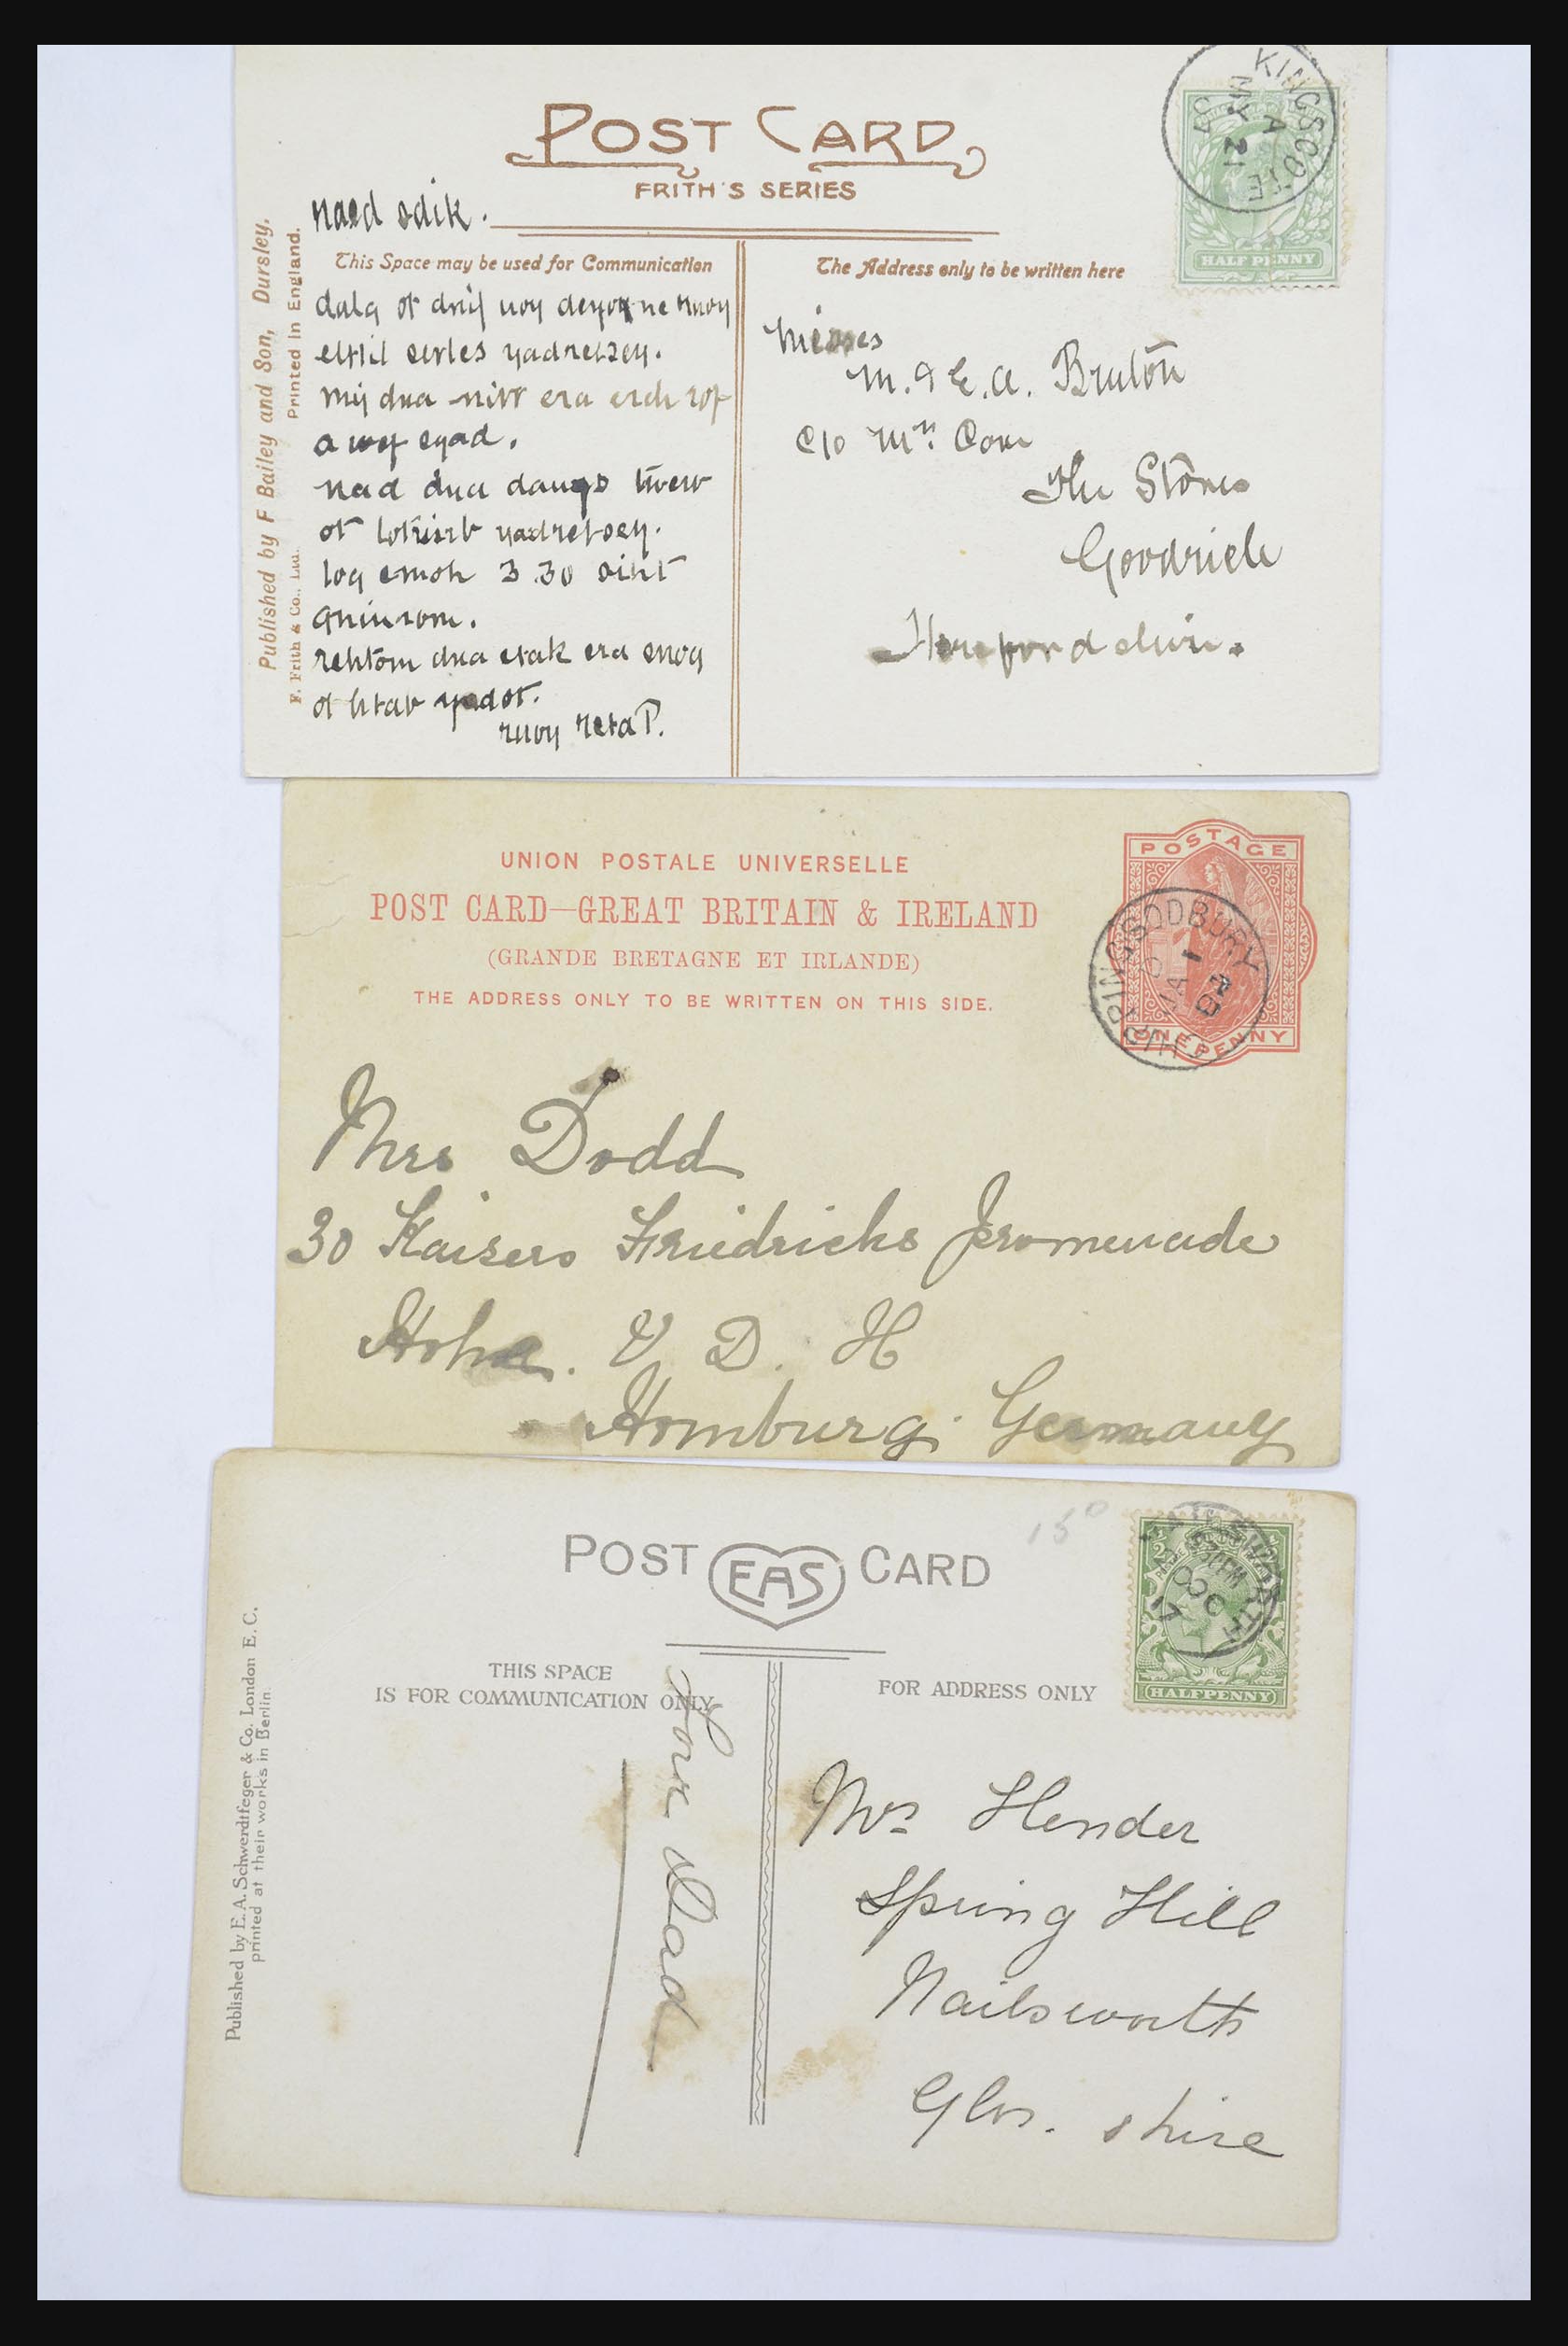 POST CARD
FRITH'S SERIES
KINGSCOTE
A
MY 21
07
HALF PENNY
Published by F Bailey and Son, Dursley.
Printed in England.
F. Frith & Co., Ltd.
naed sdik.
This Space may be used for Communication
dalg ot dnif uoy deyoyne ruoy
elttil sevles yadretsey.
mij dna nirr era ereh rof
a wef syad.
nad dna dauqs tnew
ot lotsirb yadretsey.
tog emoh 3.30 siht
gninrom.
rehtom dna etak era enog
ot htab yadot.
ruoy retaP.
The Address only to be written here
Misses
M. & E. A. Bruton
c/o Mrs.
The Stores
Goodrich
Herefordshire.
UNION POSTALE UNIVERSELLE
POST CARD—GREAT BRITAIN & IRELAND
(GRANDE BRETAGNE ET IRLANDE)
THE ADDRESS ONLY TO BE WRITTEN ON THIS SIDE.
POSTAGE
ONE PENNY
CHIPPING SODBURY
Mrs Dodd
30 Kaisers Friedrichs Promenade
Hohe. V D. H
Homburg. Germany
POST EAS CARD
15º
THIS SPACE
IS FOR COMMUNICATION ONLY
FOR ADDRESS ONLY
HALFPENNY
17
Published by E.A. Schwerdtfeger & Co. London E.C.
printed at their works in Berlin.
From Dad
Mrs Hender
Spring Hill
Nailsworth
Glos. shire